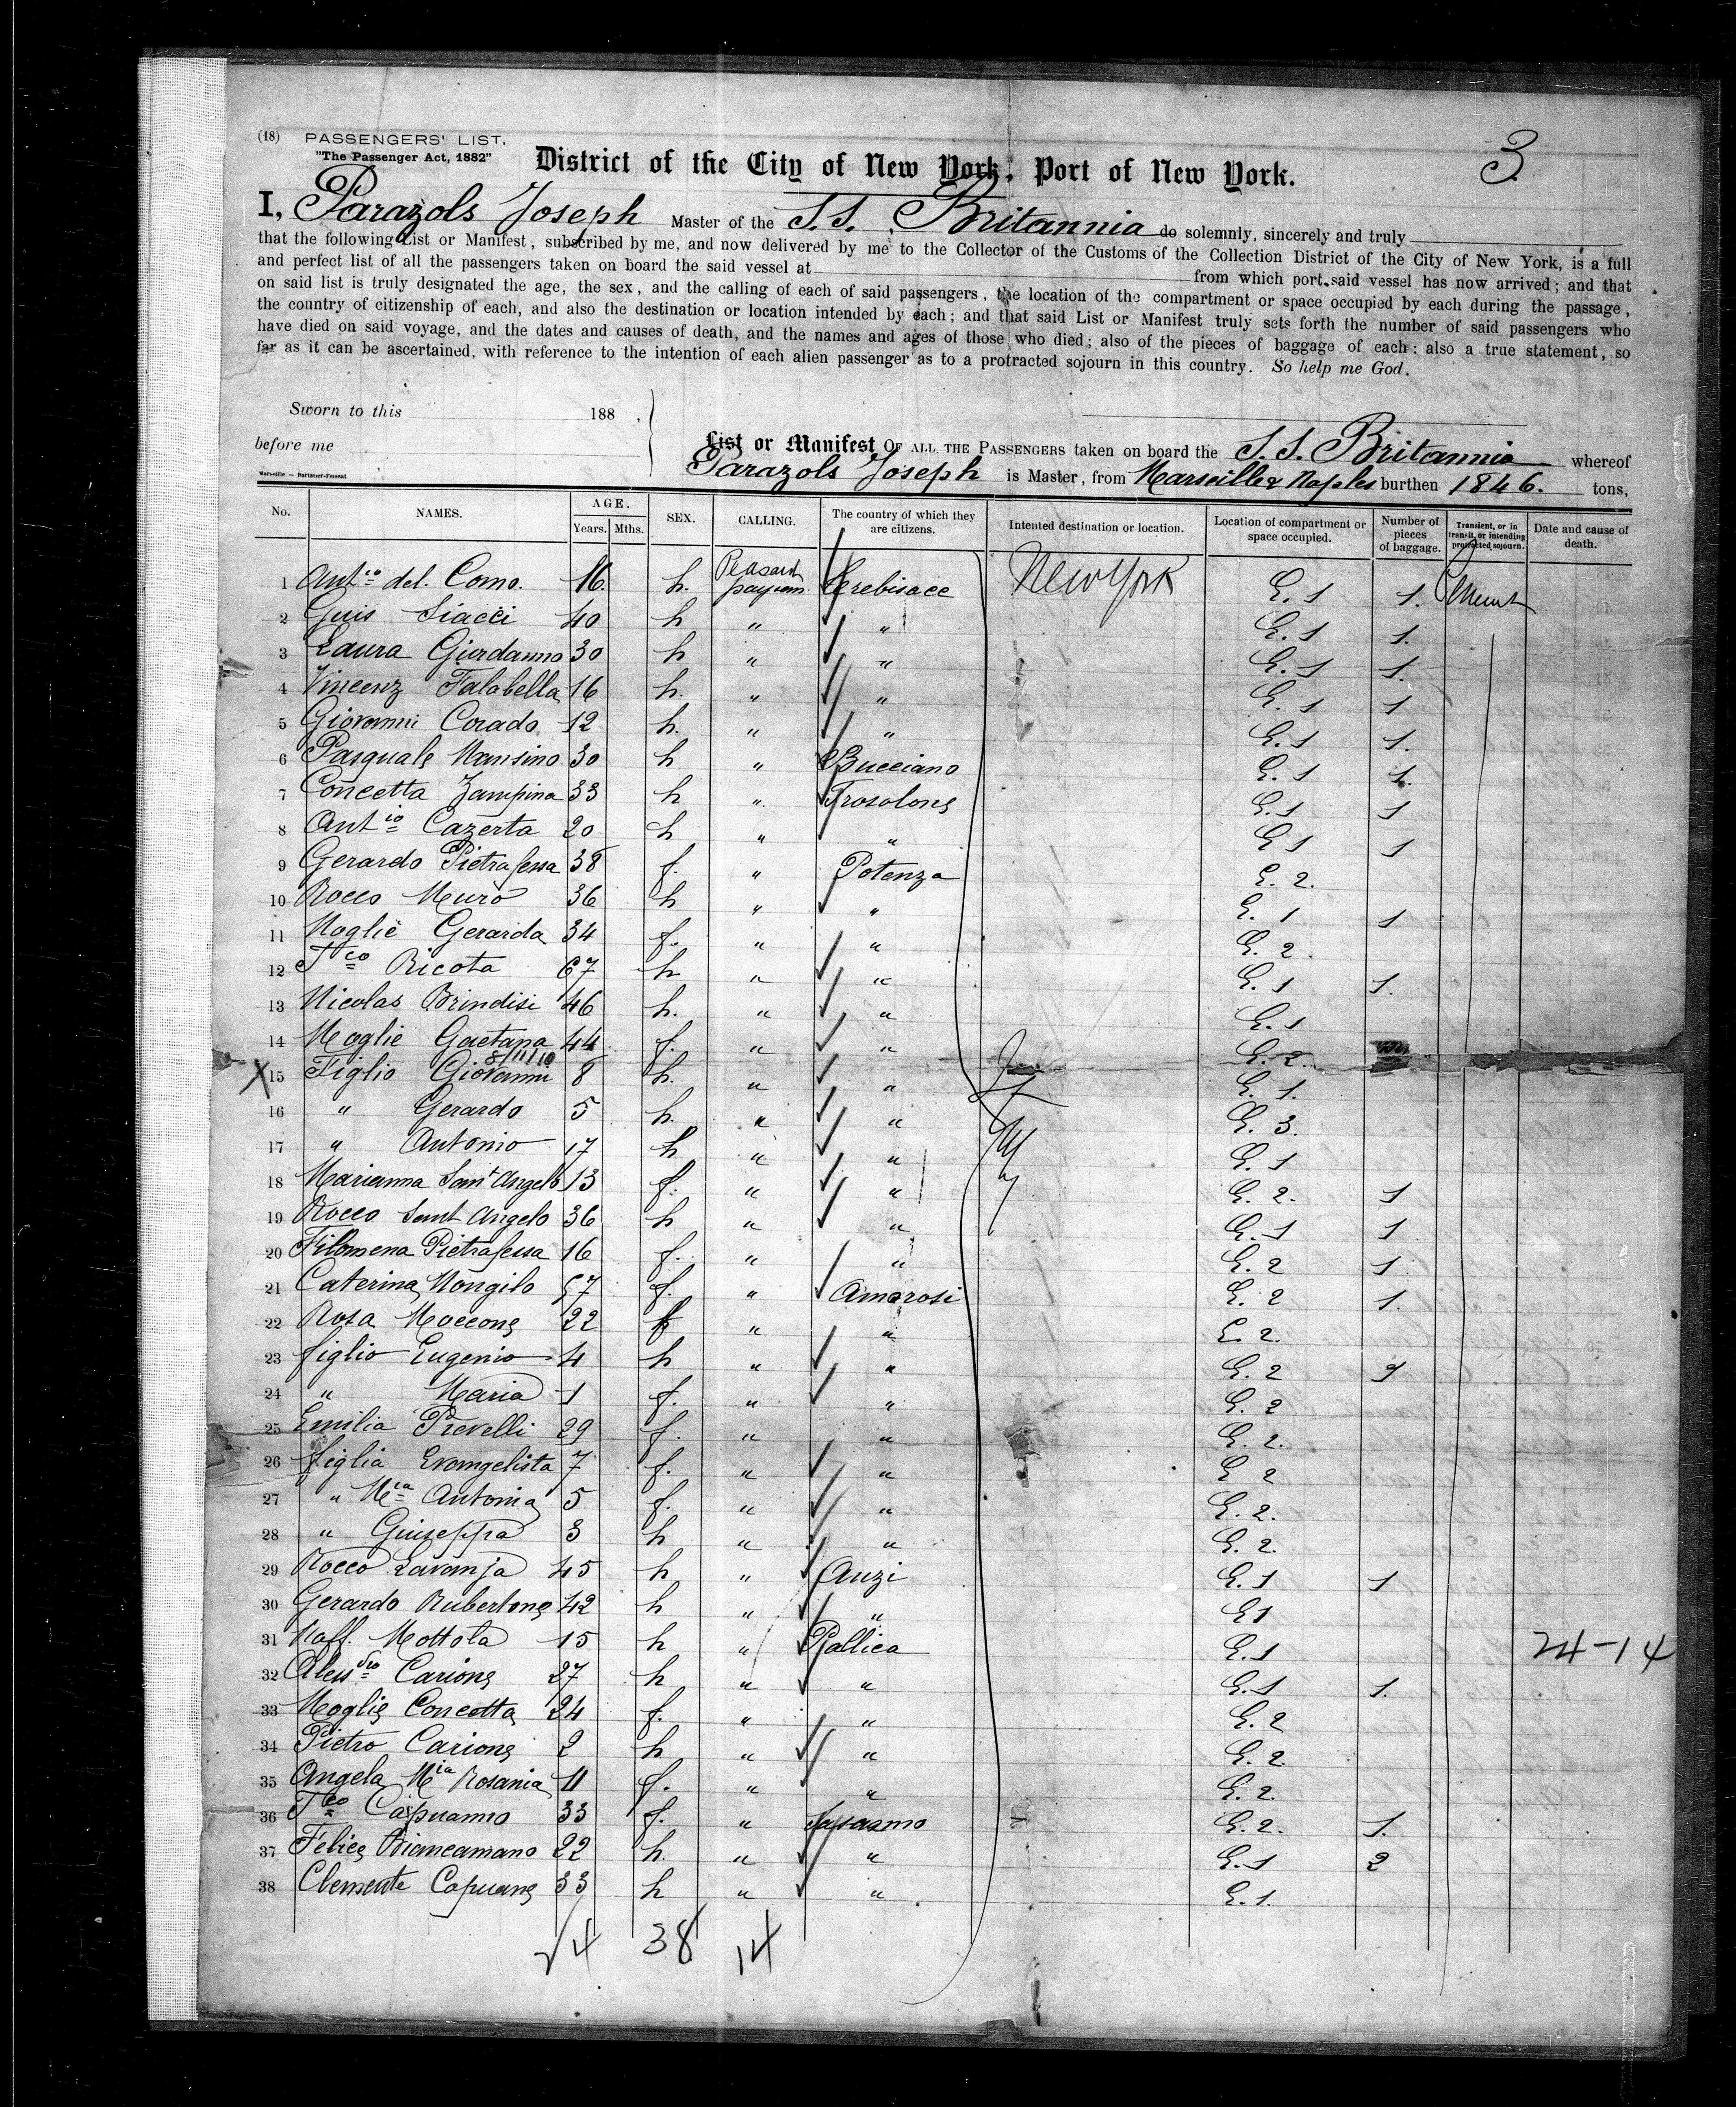 (18) PASSENGERS' LIST.
"The Passenger Act, 1882"
District of the City of New York, Port of New York.
3
I, Parazols Joseph Master of the S.S. Britannia do solemnly, sincerely and truly
that the following List or Manifest, subscribed by me, and now delivered by me to the Collector of the Customs of the Collection District of the City of New York, is a full
and perfect list of all the passengers taken on board the said vessel at from which port said vessel has now arrived; and that
on said list is truly designated the age, the sex, and the calling of each of said passengers, the location of the compartment or space occupied by each during the passage,
the country of citizenship of each, and also the destination or location intended by each; and that said List or Manifest truly sets forth the number of said passengers who
have died on said voyage, and the dates and causes of death, and the names and ages of those who died; also of the pieces of baggage of each: also a true statement, so
far as it can be ascertained, with reference to the intention of each alien passenger as to a protracted sojourn in this country. So help me God.
Sworn to this 188 .
before me
List or Manifest OF ALL THE PASSENGERS taken on board the S.S. Britannia whereof
Parazols Joseph is Master, from Marseille & Naples burthen 1846. tons,
No. NAMES. AGE. Years. Mths. SEX. CALLING. The country of which they are citizens. Intented destination or location. Location of compartment or space occupied. Number of pieces of baggage. Transient, or in transit, or intending protracted sojourn. Date and cause of death.
1 Antio del. Como. 16. h. Peasant New York E. 1 1.
2 Guis Siacci 40 h " " E. 1 1.
3 Laura Giordanno 30 h " " E. 1 1.
4 Vincenz Falabella 16 h. " " E. 1 1
5 Giovanni Corado 12 h. " " E. 1 1.
6 Pasquale Mansino 30 h " Bucciano E. 1 1.
7 Concetta Zampina 33 h " Frosolone E. 1 1
8 Antio Cazerta 20 h " " E 1 1
9 Gerardo Pietrafessa 38 f. " Potenza E. 2.
10 Rocco Muro 36 h " " E. 1 1
11 Moglie Gerarda 34 f. " " E. 2.
12 Fco Ricota 67 h " " E. 1 1.
13 Nicolas Brindisi 46 h. " " E. 1
14 Moglie Gaetana 44 f. " " E. 2.
8/11/10
X 15 Figlio Giovanni 8 h. " " E. 1.
16 " Gerardo 5 h. " " E. 3.
17 " Antonio 17 h " " E. 1
18 Marianna Sant Angelo 13 f. " " E. 2. 1
19 Rocco Sant Angelo 36 h " " E. 1 1
20 Filomena Pietrafessa 16 f. " " E. 2 1
21 Caterina Mongilo 57 f. " Amorosi E. 2 1.
22 Rosa Maccone 22 f " " E. 2.
23 figlio Eugenio 4 h " " E. 2
24 " Maria 1 f. " " E. 2
25 Emilia Prevelli 29 f. " " E. 2.
26 figlia Evangelista 7 f. " " E 2
27 " Mia Antonia 5 f. " " E. 2.
28 " Giuseppa 3 h " " E. 2.
29 Rocco Lavanja 45 h " Anzi E. 1 1
30 Gerardo Rubertone 42 h " " E 1
31 Raff. Mottola 15 h " E. 1 24-14
32 Alessdro Carione 27 h " " E. 1 1.
33 Moglie Concetta 24 f. " " E. 2
34 Pietro Carione 2 h " " E. 2
35 Angela Mia Rosania 11 f. " " E. 2.
36 Fco Capuanno 33 f. " E. 2. 1.
37 Felice Biancamano 22 h. " " E. 1 2
38 Clemente Capuane 33 h " " E. 1.
38 14